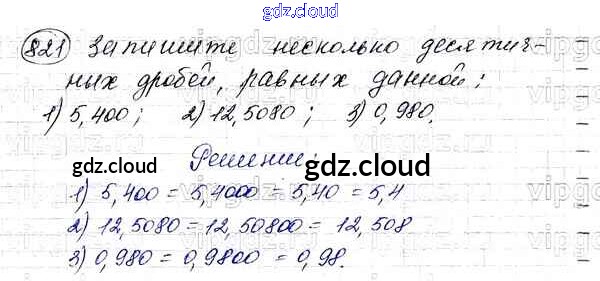 gdz.cloud
821 Запишите несколько десятич-
ных дробей, равных данной:
1) 5,400; 2) 12,5080; 3) 0,980.
Решение:
gdz.cloud gdz.cloud
1) 5,400 = 5,4000 = 5,40 = 5,4
2) 12,5080 = 12,50800 = 12,508
3) 0,980 = 0,9800 = 0,98.
gdz.cloud